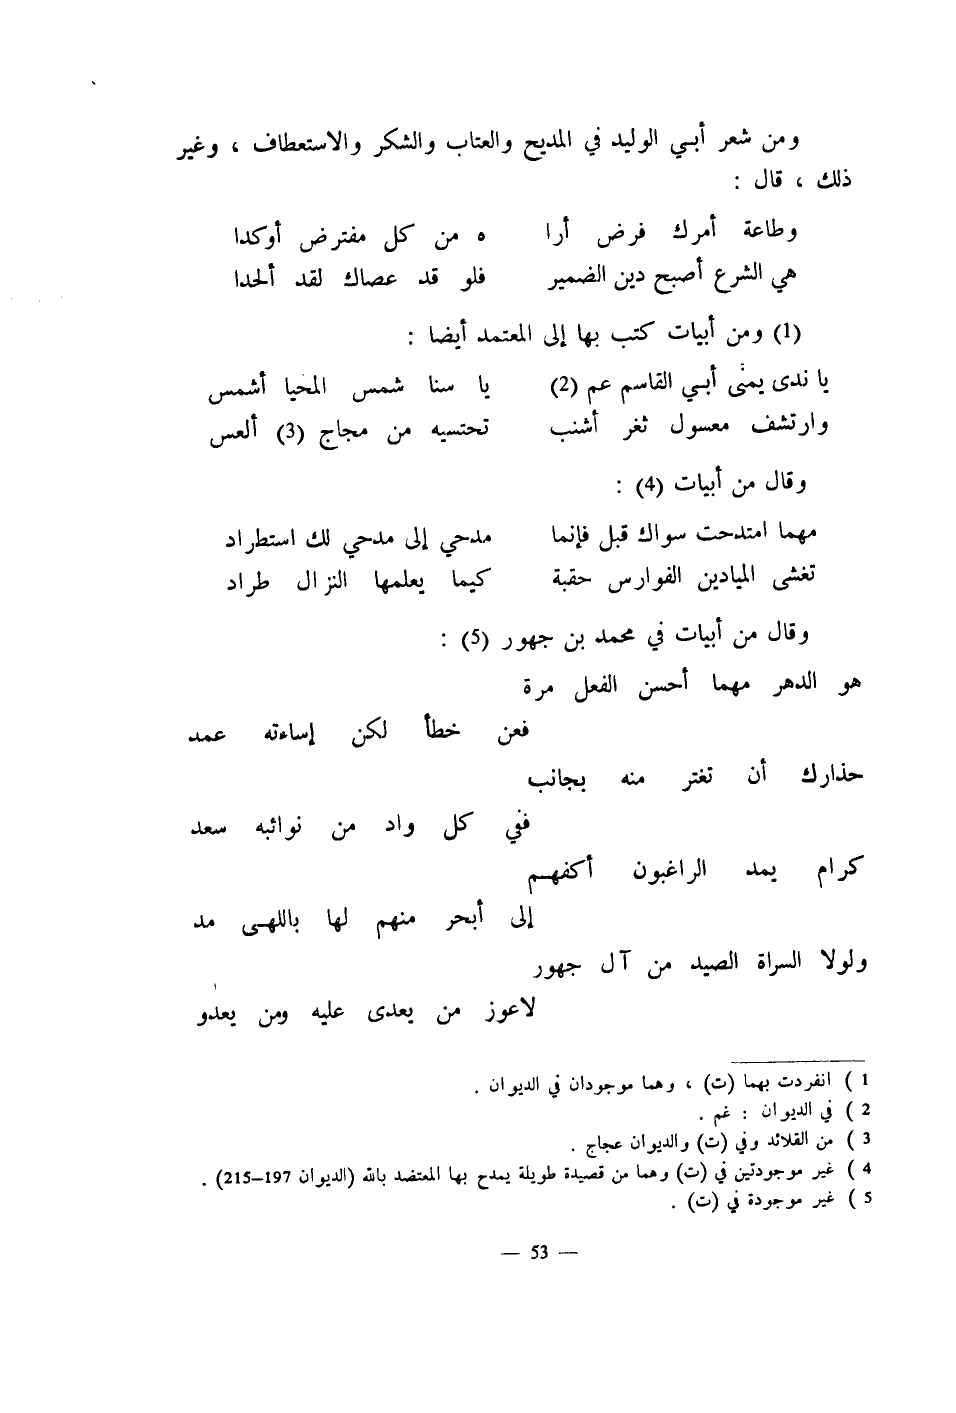 ومن شعر أبي الوليد في المديح والعتاب والشكر والاستعطاف ، وغير
ذلك ، قال :
وطاعة أمرك فرض أرا ه من كل مفترض أوكدا
هي الشرع أصبح دين الضمير فلو قد عصاك لقد ألحدا
(1) ومن أبيات كتب بها إلى المعتمد أيضا :
يا ندى يمنى أبي القاسم عم (2) يا سنا شمس المحيا أشمس
وارتشف معسول ثغر أشنب تحتسيه من مجاج (3) ألعس
وقال من أبيات (4) :
مهما امتدحت سواك قبل فإنما مدحي إلى مدحي لك استطراد
تغشى الميادين الفوارس حقبة كيما يعلمها النزال طراد
وقال من أبيات في محمد بن جهور (5) :
هو الدهر مهما أحسن الفعل مرة
فعن خطأ لكن إساءته عمد
حذارك أن تغتر منه بجانب
ففي كل واد من نوائبه سعد
كرام يمد الراغبون أكفهم
إلى أبحر منهم لها باللهى مد
ولولا السراة الصيد من آل جهور
لاعوز من يعدى عليه ومن يعدو
1 ) انفردت بهما (ت) ، وهما موجودان في الديوان .
2 ) في الديوان : غم .
3 ) من القلائد وفي (ت) والديوان عجاج .
4 ) غير موجودتين في (ت) وهما من قصيدة طويلة يمدح بها المعتضد بالله (الديوان 197–215) .
5 ) غير موجودة في (ت) .
— 53 —